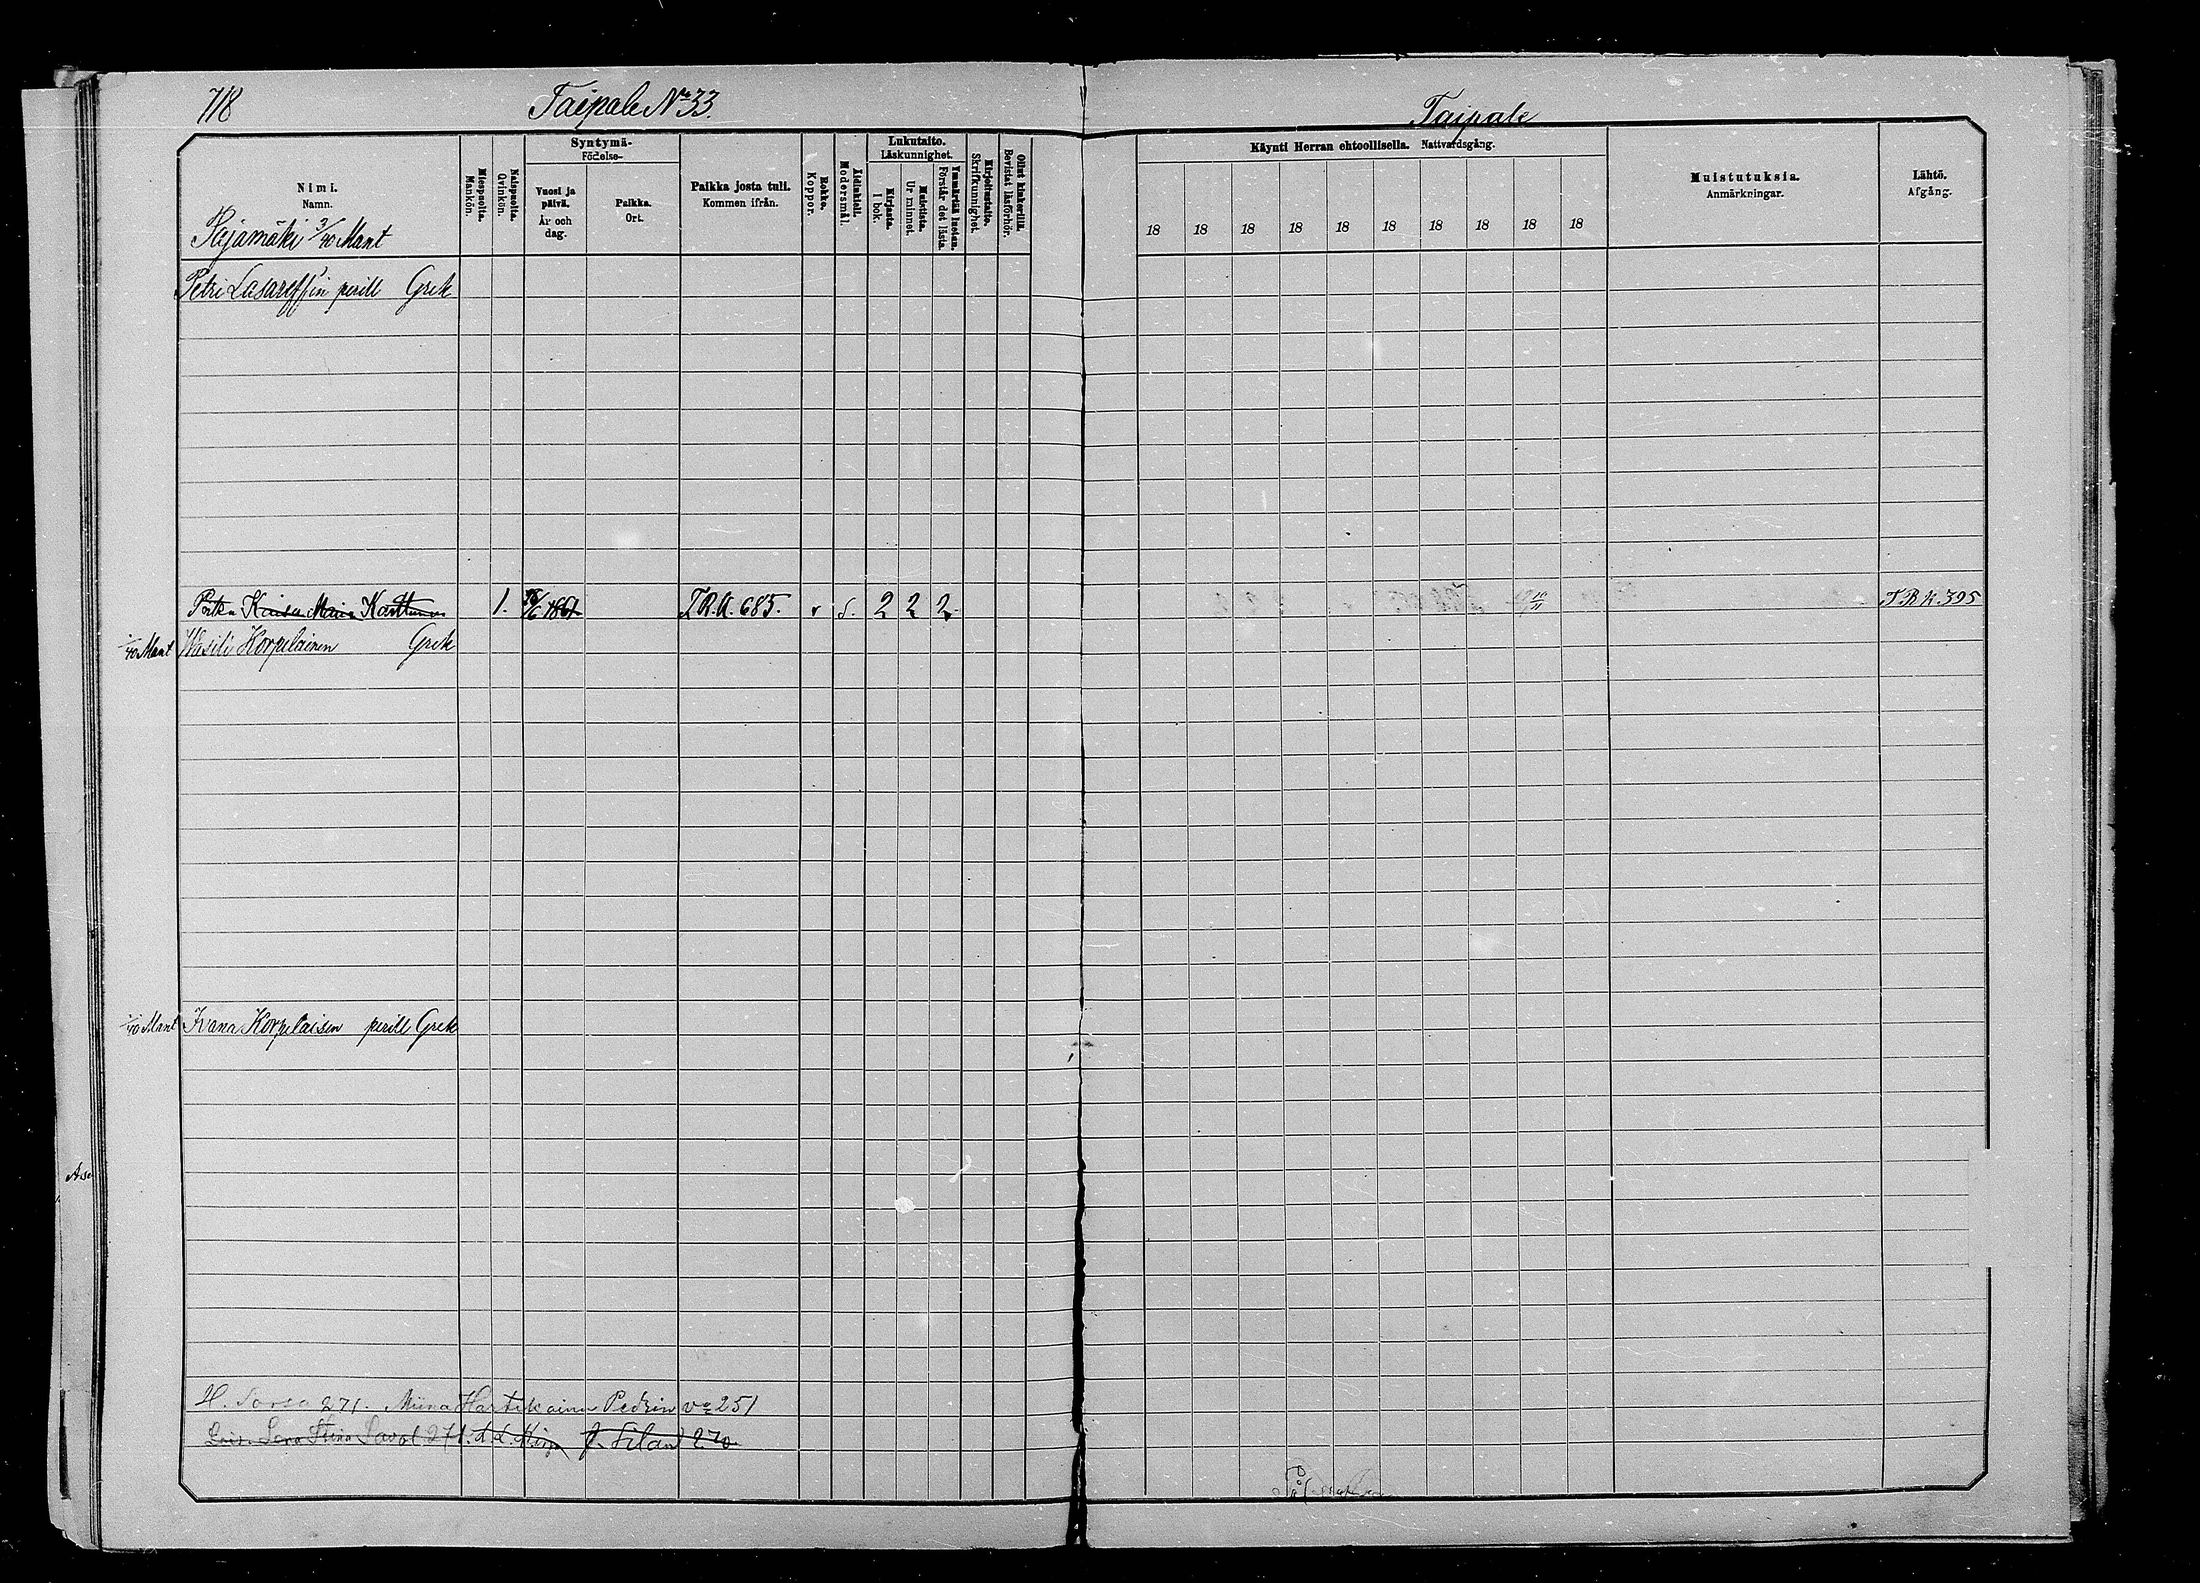 718
Taipale No 33.
Taipale
Syntymä-
Födelse-
Lukutaito.
Läskunnighet.
Käynti Herran ehtoollisella. Nattvardsgång.
Nimi.
Namn.
Miespuolta.
Mankön.
Naispuolta.
Qvinkön.
Vuosi ja päivä.
År och dag.
Paikka.
Ort.
Paikka josta tuli.
Kommen ifrån.
Rokko.
Koppor.
Äidinkieli.
Modersmål.
Kirjasta.
I bok.
Muistista.
Ur minnet.
Ymmärtää luetun.
Förstår det lästa.
Kirjoitustaito.
Skrifkunnighet.
Ollut kinkerillä.
Bevistat läsförhör.
Muistutuksia.
Anmärkningar.
Lähtö.
Afgång.
18 18 18 18 18 18 18 18 18 18
3/40 Mant
Petri Lasareffin perill Grek
Kaisa Maria Karttunen 1. 1861 685. v S. 2 2 2. 395
1/40 Mant Wasili Korpelainen Grek
1/40 Mant Ivana Korpelaisen perill Grek
H. Sorsa 271. Miina Hartikainen Pedrin 251
Stina Savol 271. 270